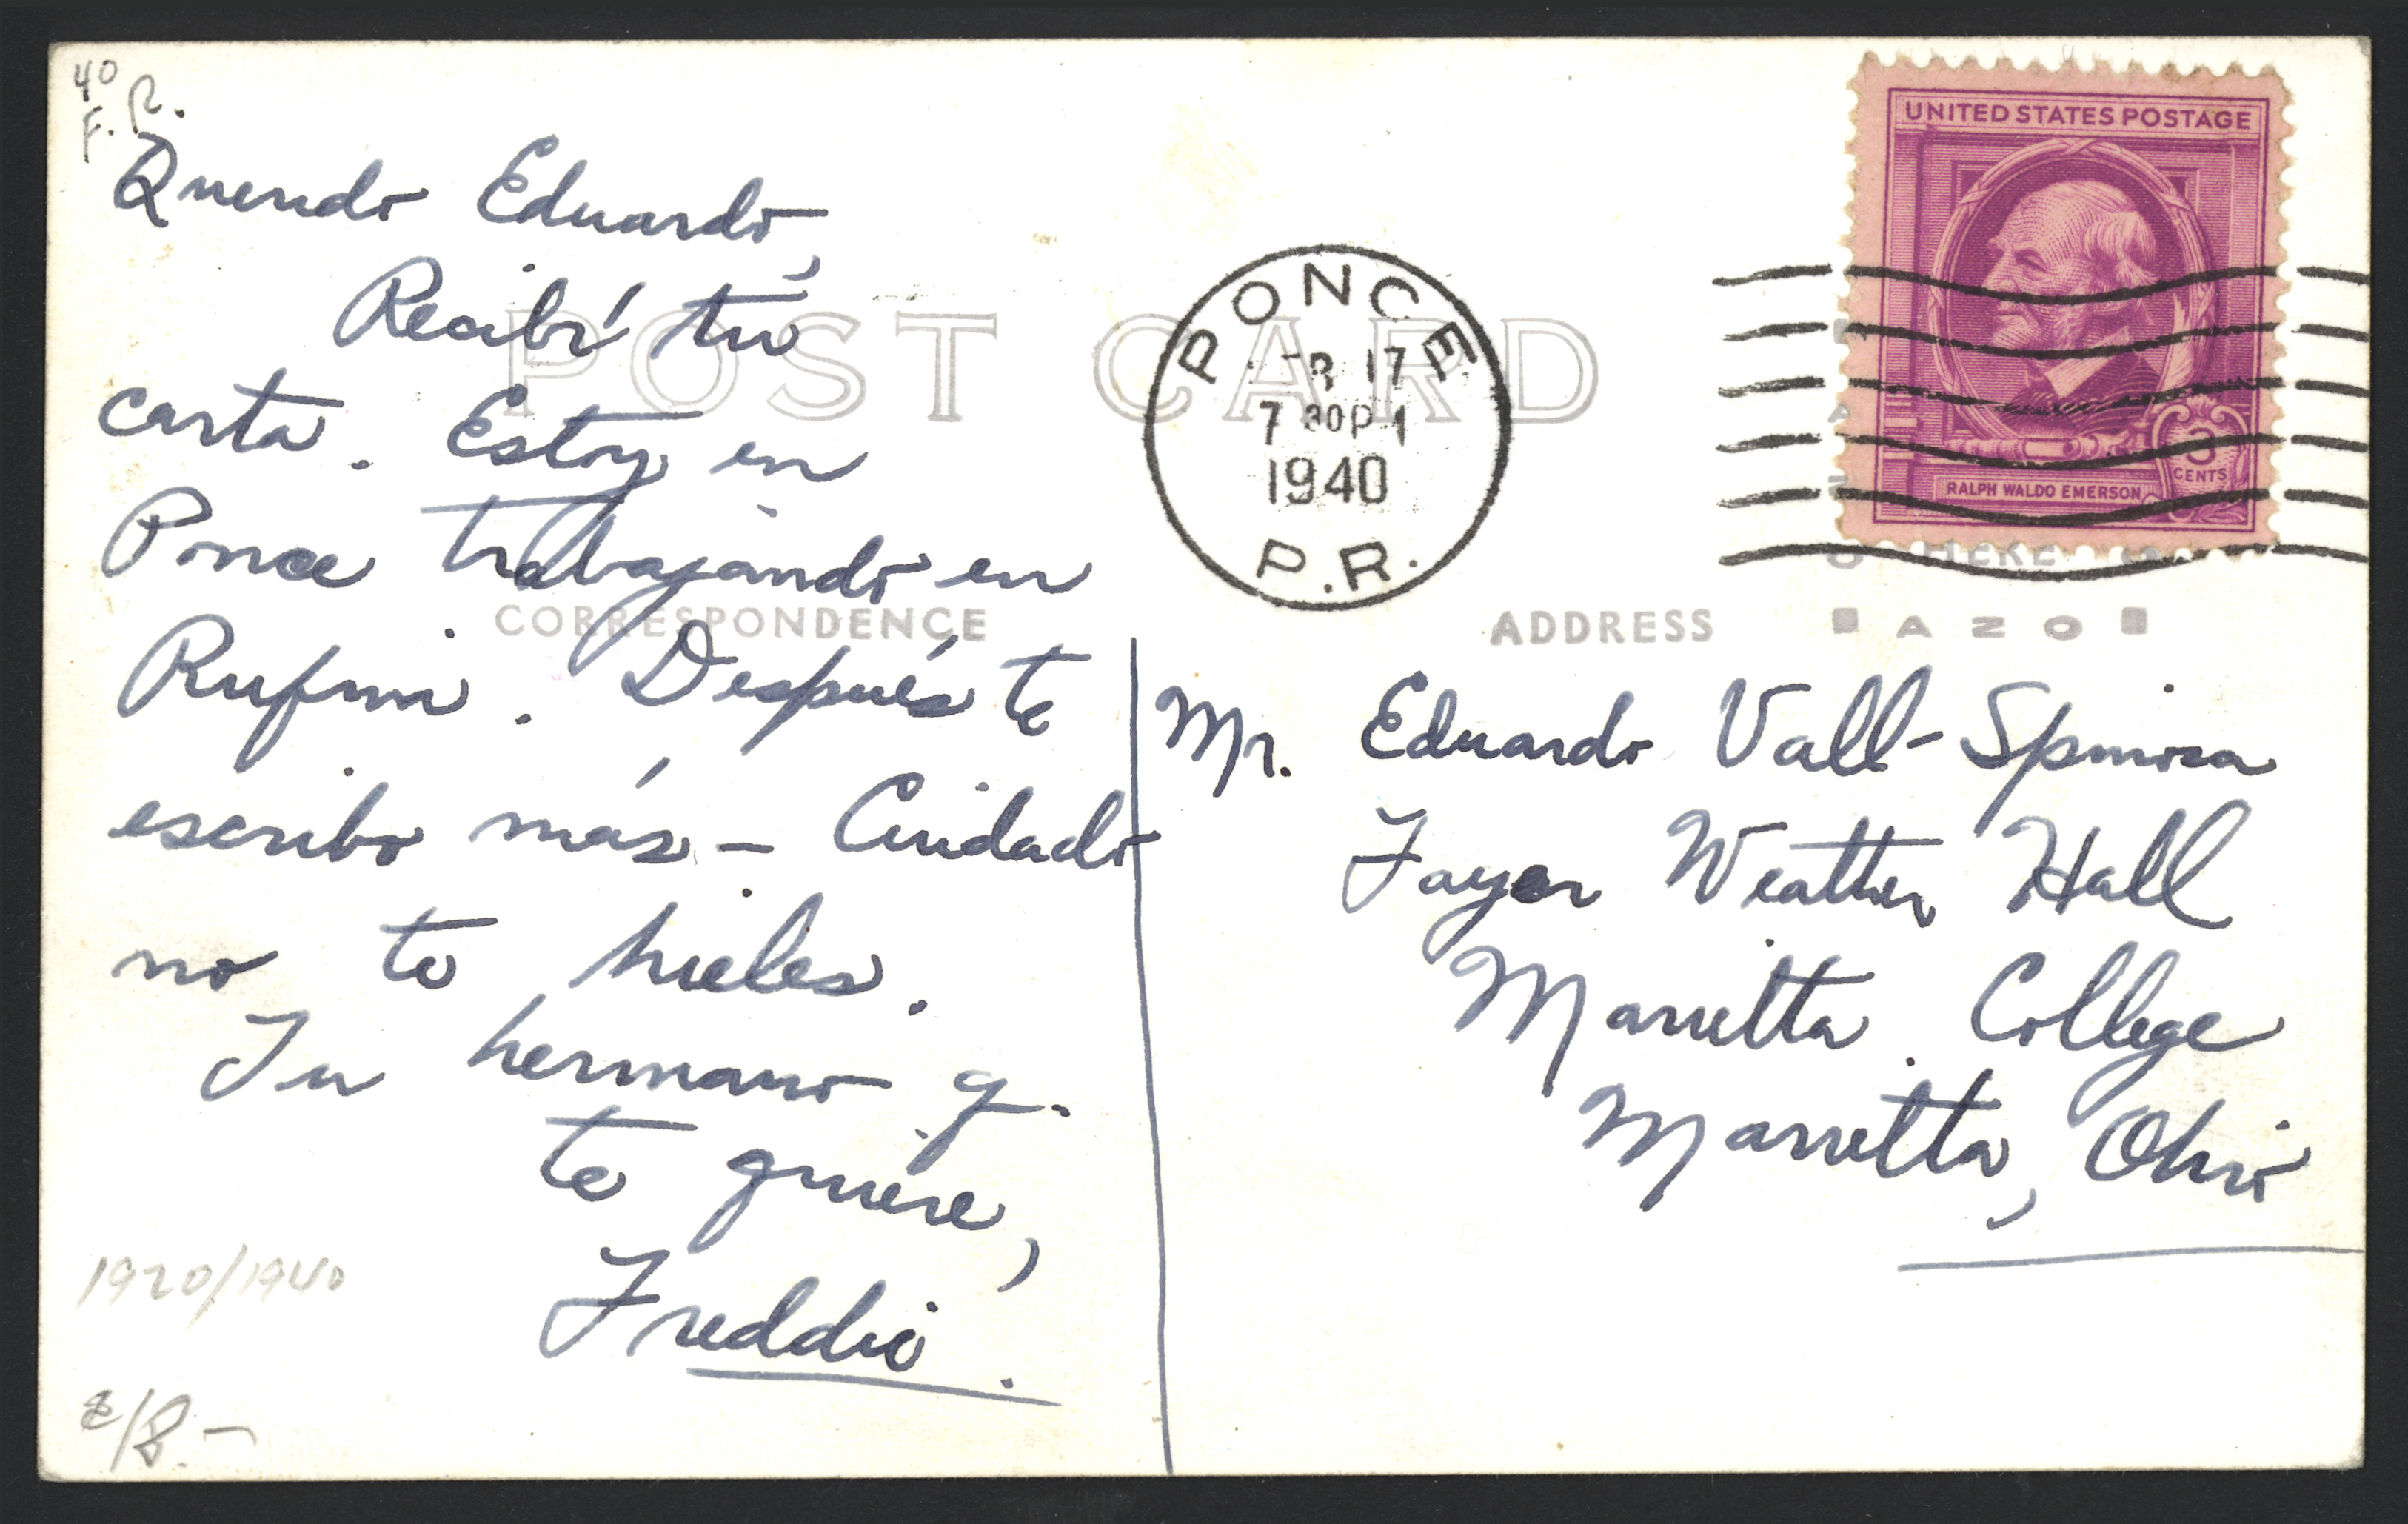 40
F. R.
Querido Eduardo,
Recibí tu
carta. Estoy en
Ponce trabajando en
Después te
escribo más – Cuidado
no te hieles.
Tu hermano q.
te quiere,
Freddie.
1920/1940
POST CARD
CORRESPONDENCE
PONCE
R 17
7 30P
1940
P.R.
UNITED STATES POSTAGE
3
CENTS
RALPH WALDO EMERSON
HERE
ADDRESS
AZO
Mr. Eduardo Vall-Spinosa
Fayer Weather Hall
Marietta College
Marietta, Ohio